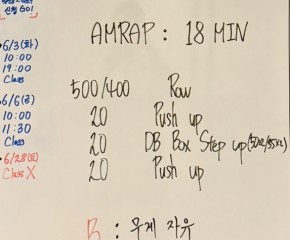 신청 GO!
6/3(화)
10:00
19:00
Class
6/6(금)
10:00
11:30
Class
6/28(토)
Class X
AMRAP : 18 MIN
500/400 Row
20 Push up
20 DB Box Step up
20 Push up
B : 무게 자유